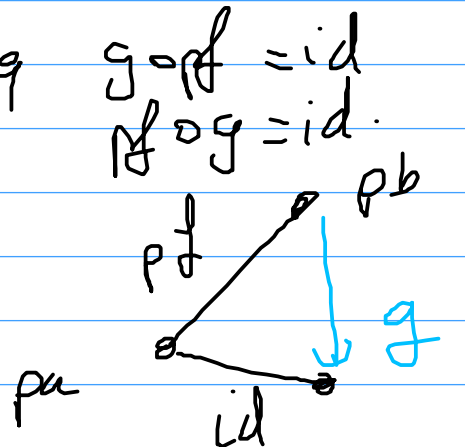 q g∘pf = id
pf∘g = id.
pb
pf
g
pa
id